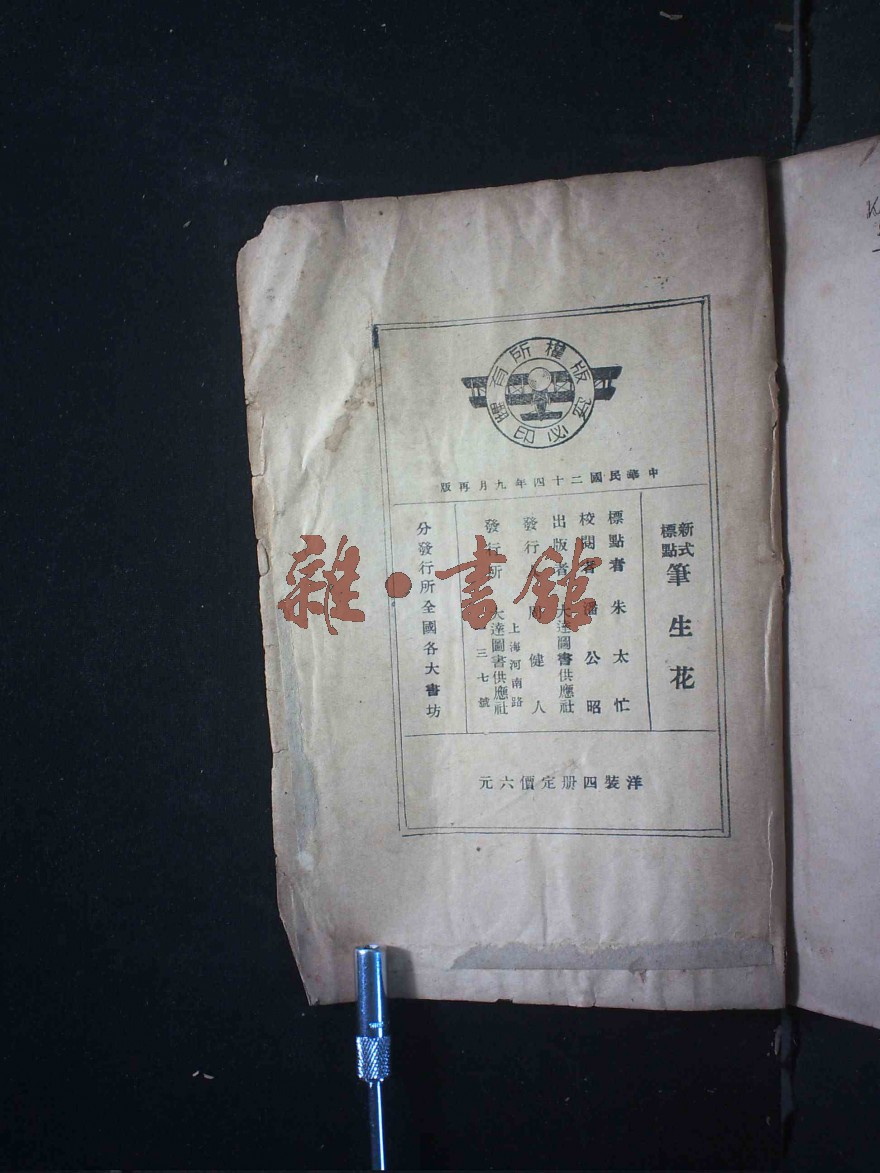 版權所有
翻印必究
中華民國二十四年九月再版
新式標點 筆生花
標點者 朱太忙
校閱者 潘公昭
出版者 大達圖書供應社
發行人 周健人
上海河南路
發行所 大達圖書供應社
三七號
分發行所全國各大書坊
洋裝四册定價六元
雜·書館